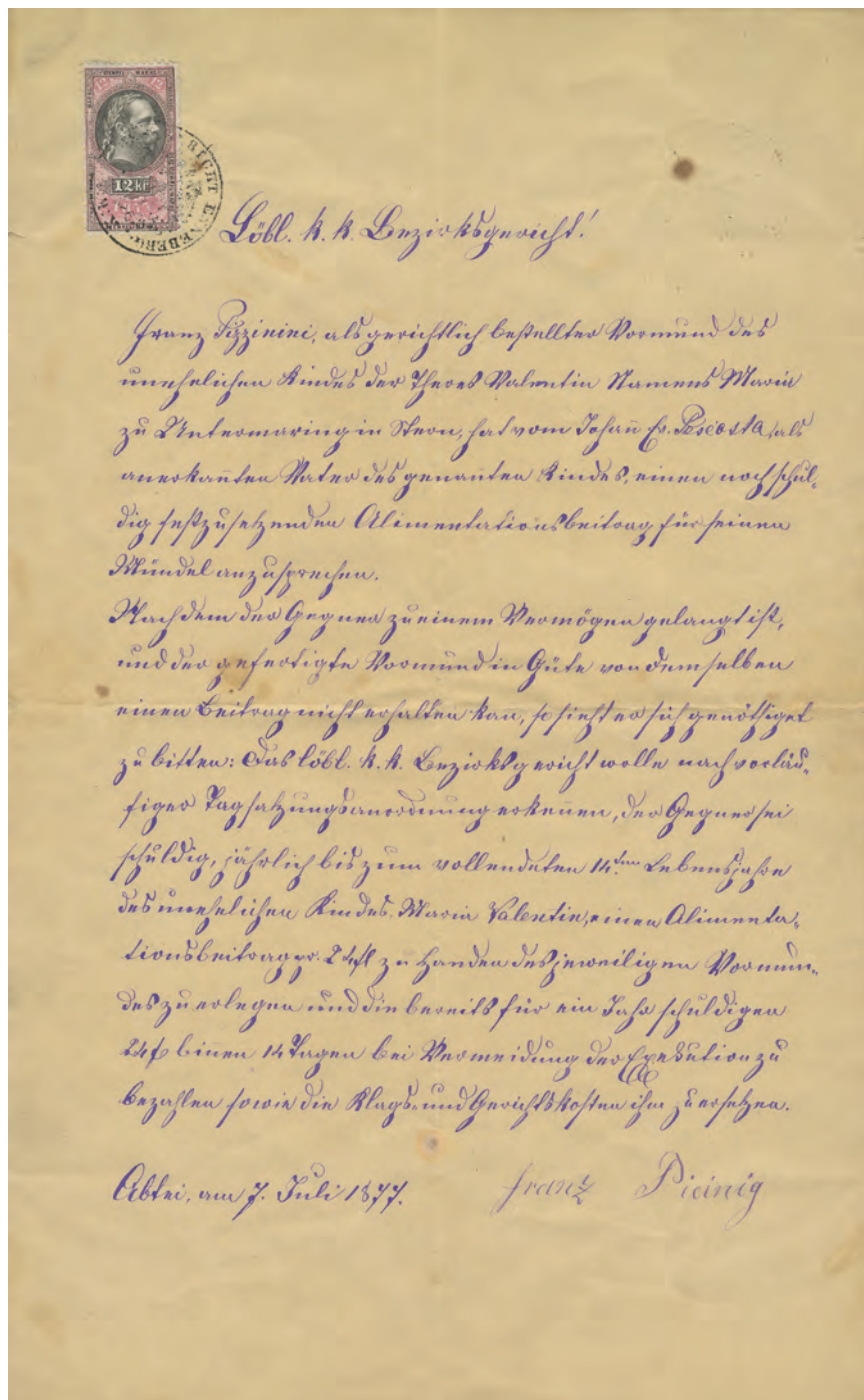 12 Kr
BEZIRKSGERICHT ENNEBERG
Löbl. k. k. Bezirksgericht!
Franz Pizzinini, als gerichtlich bestellter Vormund des
unehelichen Kindes der Theres Valentin Namens Maria
zu Untermaring in Stern, hat vom Johañ Ev. Pescosta, als
anerkañten Vater des genañten Kindes, einen noch schul-
dig festzusetzenden Alimentationsbeitrag für seinen
Mündel anzusprechen.
Nachdem der Gegner zu einem Vermögen gelangt ist,
und der gefertigte Vormund in Güte von demselben
einen Beitrag nicht erhalten kañ, so sieht er sich genöthiget
zu bitten: Das löbl. k. k. Bezirksgericht wolle nach vorläu-
figer Tagsatzungsanordnung erkeñen, der Gegner sei
schuldig, jährlich bis zum vollendeten 14.ten Lebensjahre
des unehelichen Kindes Maria Valentin, einen Alimenta-
tionsbeitrag pr. 24 fl zu Handen des jeweiligen Vormun-
des zu erlegen und die bereits für ein Jahr schuldigen
24 f biñen 14 Tagen bei Vermeidung der Exekution zu
bezahlen sowie die Klags- und Gerichtskosten ihm zu ersetzen.
Abtei, am 7. Juli 1877. franz Picinig